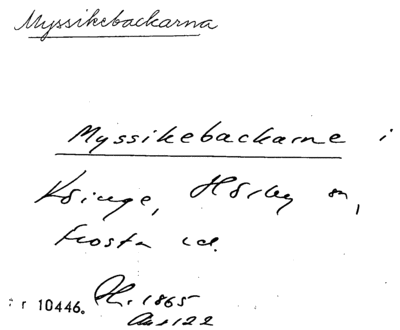 Myssikebackarna
Myssikebackarne i
Köinge, Hörby sn,
Frosta hd.
r 10446. 1865
122